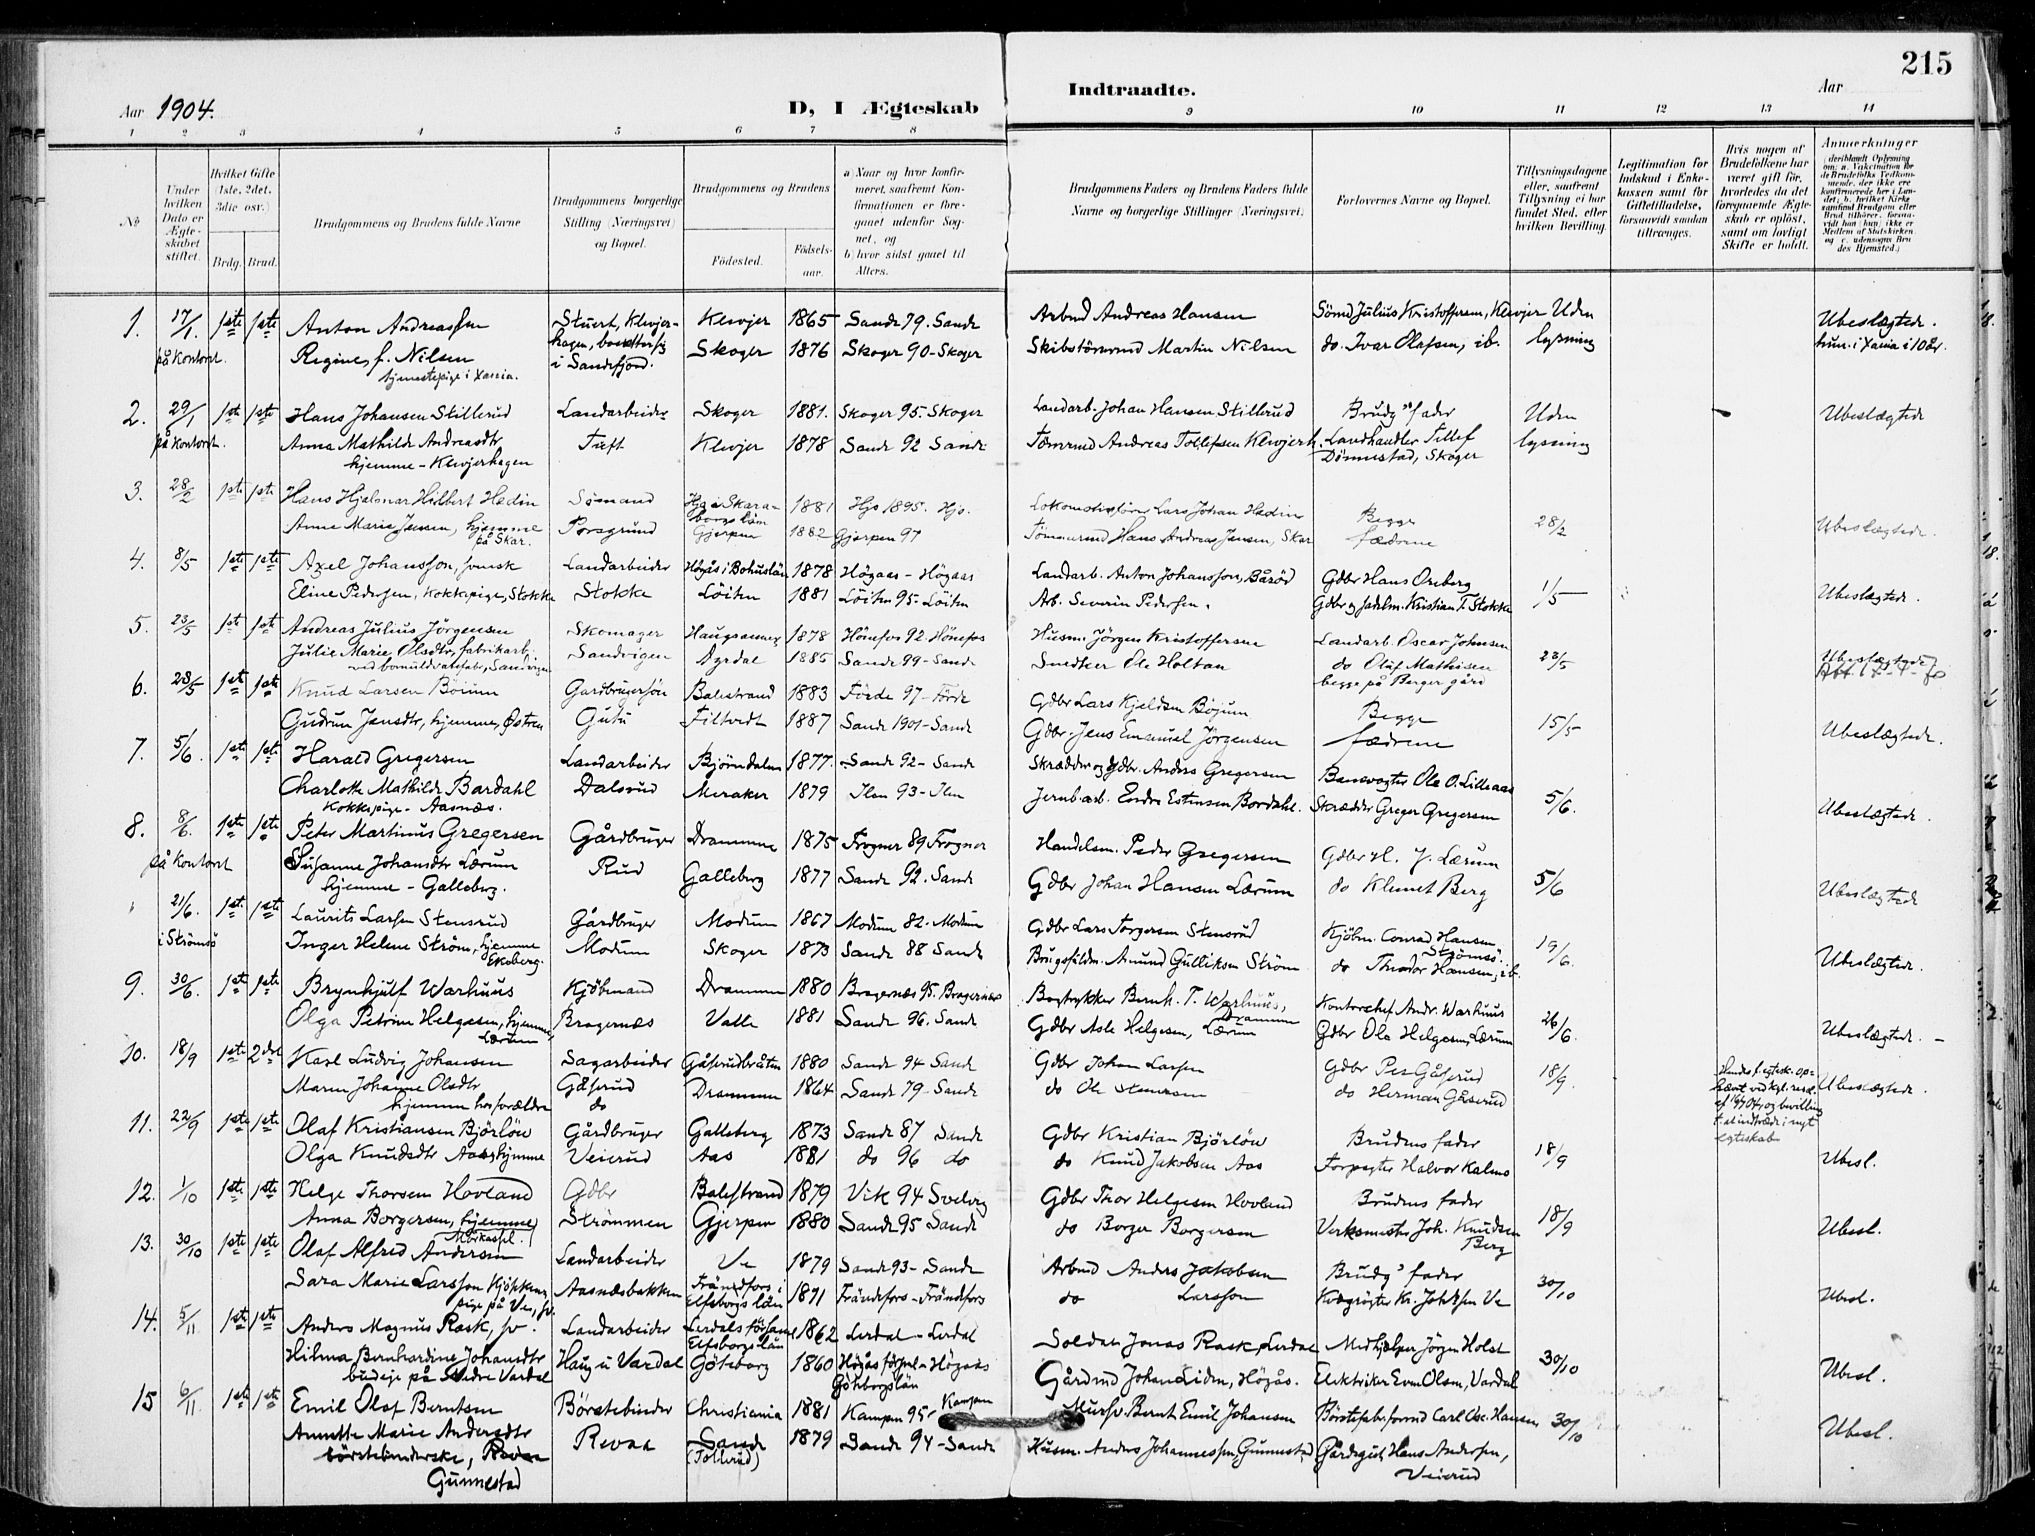 215
Aar 1904.
D, I Ægteskab
Indtraadte.
Aar
1 2 3 4 5 6 7 8 9 10 11 12 13 14
No
Under hvilken Dato er Ægteskabet stiftet.
Hvilket Gifte (1ste, 2det, 3die osv.)
Brdg. Brud.
Brudgommens og Brudens fulde Navne
Brudgommens borgerlige Stilling (Næringsvei) og Bopæl.
Brudgommens og Brudens
Födested.
Födselsaar.
a) Naar og hvor konfirmeret, saafremt Konfirmationen er foregaaet udenfor Sognet, og
b) hvor sidst gaaet til Alters.
Brudgommens Faders og Brudens Faders fulde Navne og borgerlige Stillinger (Næringsvei)
Forlovernes Navne og Bopæl.
Tillysningsdagene eller, saafremt Tillysning ei har fundet Sted, efter hvilken Bevilling.
Legitimation for Indskud i Enkekassen samt for Giftetilladelse, forsaavidt saadan tiltrænges.
Hvis nogen af Brudefolkene har været gift för, hvorledes da det foregaaende Ægteskab er oplöst, samt om lovligt Skifte er holdt.
Anmerkninger
1. 17/1 1ste 1ste Anton Andreassen Stuert, Klevjer- Klevjer 1865 Sande 79. Sande Arbmd Andreas Hansen Sömd Julius Kristoffersen, Klevjer Uden Ubeslægtede.
på Kontoret. Regine, f. Nilsen hagen, bosætter sig Skoger 1876 Skoger 90 - Skoger Skibstömmerm Martin Nilsen do. Ivar Olafsen, ib. lysning hun. i Xania i 10 år.
tjenestepige i Xania. i Sandefjord.
2. 29/1 1ste 1ste Hans Johansen Stillerud Landarbeider Skoger 1881. Skoger 95. Skoger Landarb. Johan Hansen Stillerud Brudgs fader Uden Ubeslægtede
på Kontoret. Anna Mathilde Andreasdtr Tuft Klevjer 1878 Sande 92 Sande Tömmrmd Andreas Tollefsen Klevjerh. Landhandler Tillef lysning
hjemme - Klevjerhagen Dönnestad, Skoger
3. 28/2 1ste 1ste Hans Hjalmar Hilbert Hedin Sömand Hjo i Skara- 1881 Hjo 1895. Hjo. Lokomotivförer Lars Johan Hedin Begge 28/2 Ubeslægtede.
Anne Marie Jensen, hjemme Porsgrund borgs län Gjerpen 1882 Gjerpen 97 Tömmermd Hans Andreas Jensen, Skar fædrene
på Skar.
4. 8/5 1ste 1ste Axel Johansson, svensk Landarbeider Högås i Bohuslän 1878 Högaas - Högaas Landarb. Anton Johansson, Båröd Gdbr Hans Oreberg 1/5 Ubeslægtede.
Eline Pedersen, Kokkepige, Stokke Stokke Löiten 1881 Löiten 95. Löiten Arb. Severin Pedersen. Gdbr og Sadelm. Kristian F. Stokke
5. 23/5 1ste 1ste Andreas Julius Jörgensen Skomager 1878 Hönefos 92. Hönefos Husm. Jörgen Kristoffersen Landarb. Oscar Johnsen 23/5 Ubeslægtede
Julie Marie Olsdtr, fabrikarb. Sandvigen 1885 Sande 99 - Sande Smed Ole Holtan do Oluf Mathisen
begge på Berger gård
6. 28/5 1ste 1ste Knud Larsen Böium Gardbrugersön Balestrand 1883 Förde 97 - Förde Gdbr Lars Kjeldsen Böjum Begge 15/5 Ubeslægtede.
Gudrun Jensdtr, hjemme, Östren Gutu Filtvedt 1887 Sande 1901 - Sande Gdbr. Jens Emanuel Jörgensen fædrene
7. 5/6 1ste 1ste Harald Gregersen Landarbeider Björndalen 1877. Sande 92 - Sande Skrædder og Gdbr. Anders Gregersen Banevogter Ole O. Lilleaas 5/6. Ubeslægtede.
Charlotte Mathilde Bardahl Dalsrud Meraker 1879 Ilen 93 - Ilen Jernb.arb. Endre Estensen Bordahl. Skrædder Greger Gregersen
Kokkepige - Aasnæs.
8. 8/6. 1ste 1ste Peter Martinus Gregersen Gårdbruger Drammen 1875 Frogner 89 Frogner Handelsm. Peder Gregersen Gdbr H. J. Lærum 5/6 Ubeslægtede
på Kontoret Susanne Johansdtr Lærum Rud Galleberg 1877 Sande 92. Sande Gdbr Johan Hansen Lærum do Klemet Berg
hjemme - Galleberg.
" 21/6. 1ste 1ste Laurits Larsen Stensrud Gårdbruger Modum 1867 Modum 82. Modum Gdbr Lars Torgersen Stensrud Kjöbm. Conrad Hansen 19/6. Ubeslægtede.
i Strömsö Inger Helene Ström, hjemme Modum Skoger 1873 Sande 88 Sande Brugsfuldm. Amund Gulliksen Ström Strömsö. do Theodor Hansen, ib.
Ekeberg.
9. 30/6. 1ste 1ste Brynhjulf Warhuus Kjöbmand Drammen 1880 Bragernæs 95. Bragernæs Bogtrykker Bernh. T. Warhuus, Drammen Kontorchef Andr. Warhuus 26/6. Ubeslægtede. -
Olga Petrine Helgesen, hjemme, Lærum Bragernæs Valle 1881 Sande 96. Sande Gdbr Asle Helgesen, Lærum Gdbr Ole Helgesen, Lærum
10. 18/9 1ste 2det Karl Ludvig Johansen Sagarbeider Gåserudbråten 1880 Sande 94 Sande Gdbr Johan Larsen Gdbr Per Gåserud 18/9. Hendes f. egtesk. oplæst ved kgl. resol. af og bevilling t. at indtræde i nyt egteskab Ubeslægtede.
Maren Johanne Olsdtr Gåserud Drammen 1864 Sande 79 - Sande do Ole Stenersen do Herman Gåserud
hjemme hos forældre do
11. 22/9 1ste 1ste Olaf Kristiansen Björlöw Gårdbruger Galleberg 1873 Sande 87 Sande Gdbr Kristian Björlöw Brudens fader 18/9 Ubesl.
Olga Knudsdtr Aas, hjemme Veierud Aas 1881 do 96 do do Knud Jakobsen Aas Forpagter Halvor Kalnes
12. 1/10 1ste 1ste Helge Thorsen Hovland Gdbr Balestrand 1879 Vik 94 Svelvig Gdbr Thor Helgesen Hovland Brudens fader 18/9 Ubesl.
Anna Borgersen, hjemme Strömmen Gjerpen 1880 Sande 95 Sande do Borger Borgersen Verksmester Joh. Knudsen Berg
13. 30/10 1ste 1ste Olaf Alfred Andersen Landarbeider Ve 1879 Sande 93 - Sande Arbmd Anders Jakobsen Brudgs fader 30/10 Ubesl.
Sara Marie Larsson Kjökken- Aasnæsbakken Frändefors i 1871 Frändefors - Frändefors do Larsson Kvægrögter Kr. Johnsen Ve
pige på Ve, sv. Elfsborgs län
14. 5/11 1ste 1ste Anders Magnus Rask, sv. Landarbeider Lerdals församl 1862 Lerdal - Lerdal Soldat Jonas Rask, Lerdal Medhjelper Jörgen Holst 30/10 Ubesl.
Elfsborgs län
Hilma Bernhardine Johansdtr Haug u Vardal Göteborg 1860 Högås försml - Högaas Gårdmd Johan Liden, Högås. Elektriker Even Olsen, Vardal
budeje på Södre Vardal Göteborgslän
15 6/11 1ste 1ste Emil Olaf Berntsen Börstebinder Christiania 1881 Kampen 95 - Kampen Mursv. Bernt Emil Johansen Börstefabr.formd Carl Osc. Hansen 30/10 Ubesl.
Annette Marie Andersdtr Revaa Sande 1879 Sande 94 - Sande Husm. Anders Johannessen, Gunnestad Gårdeger Hans Andersen,
börstebinderske, (Tollerud) Veierud
Gunnestad